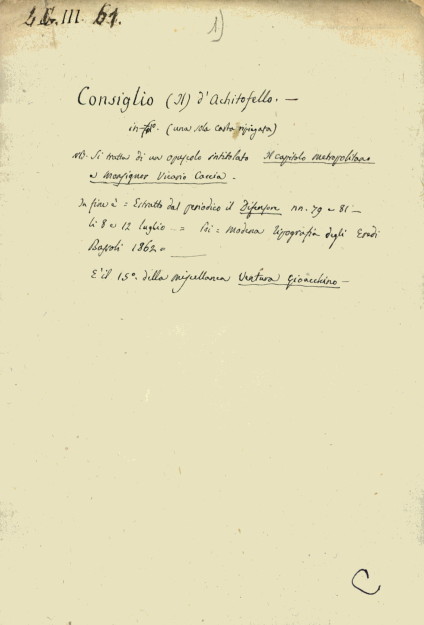 2G.III.61.
1)
Consiglio (Il) d'Achitofello. —
in-f.º (una sola carta ripiegata)
NB. Si tratta di un opuscolo intitolato Il capitolo metropolitano
e Monsignor Vicario Caccia.
In fine è = Estratto dal periodico il Difensore nn. 79 e 81 —
li 8 e 12 luglio — = Poi = Modena Tipografia degli Eredi
1862 =
E' il 15º. della miscellanea Ventura Gioacchino —
C